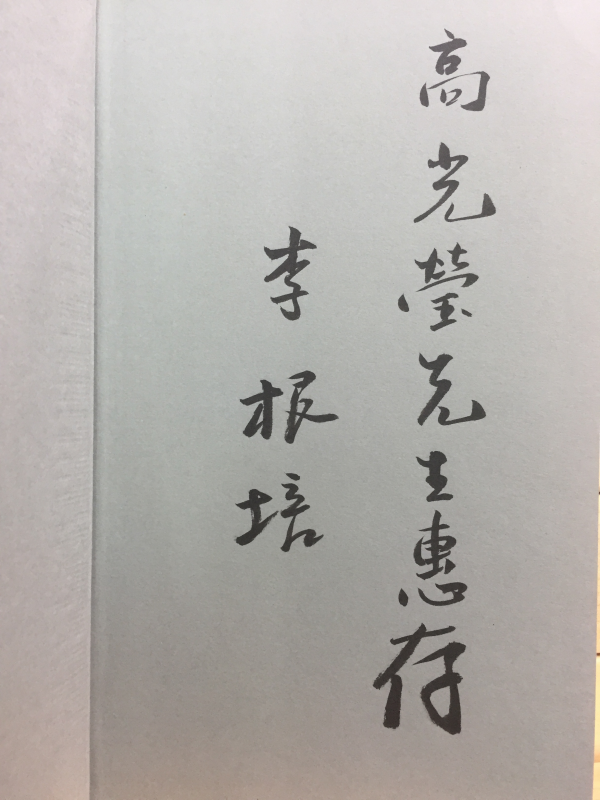 高光瑩先生惠存
李根培